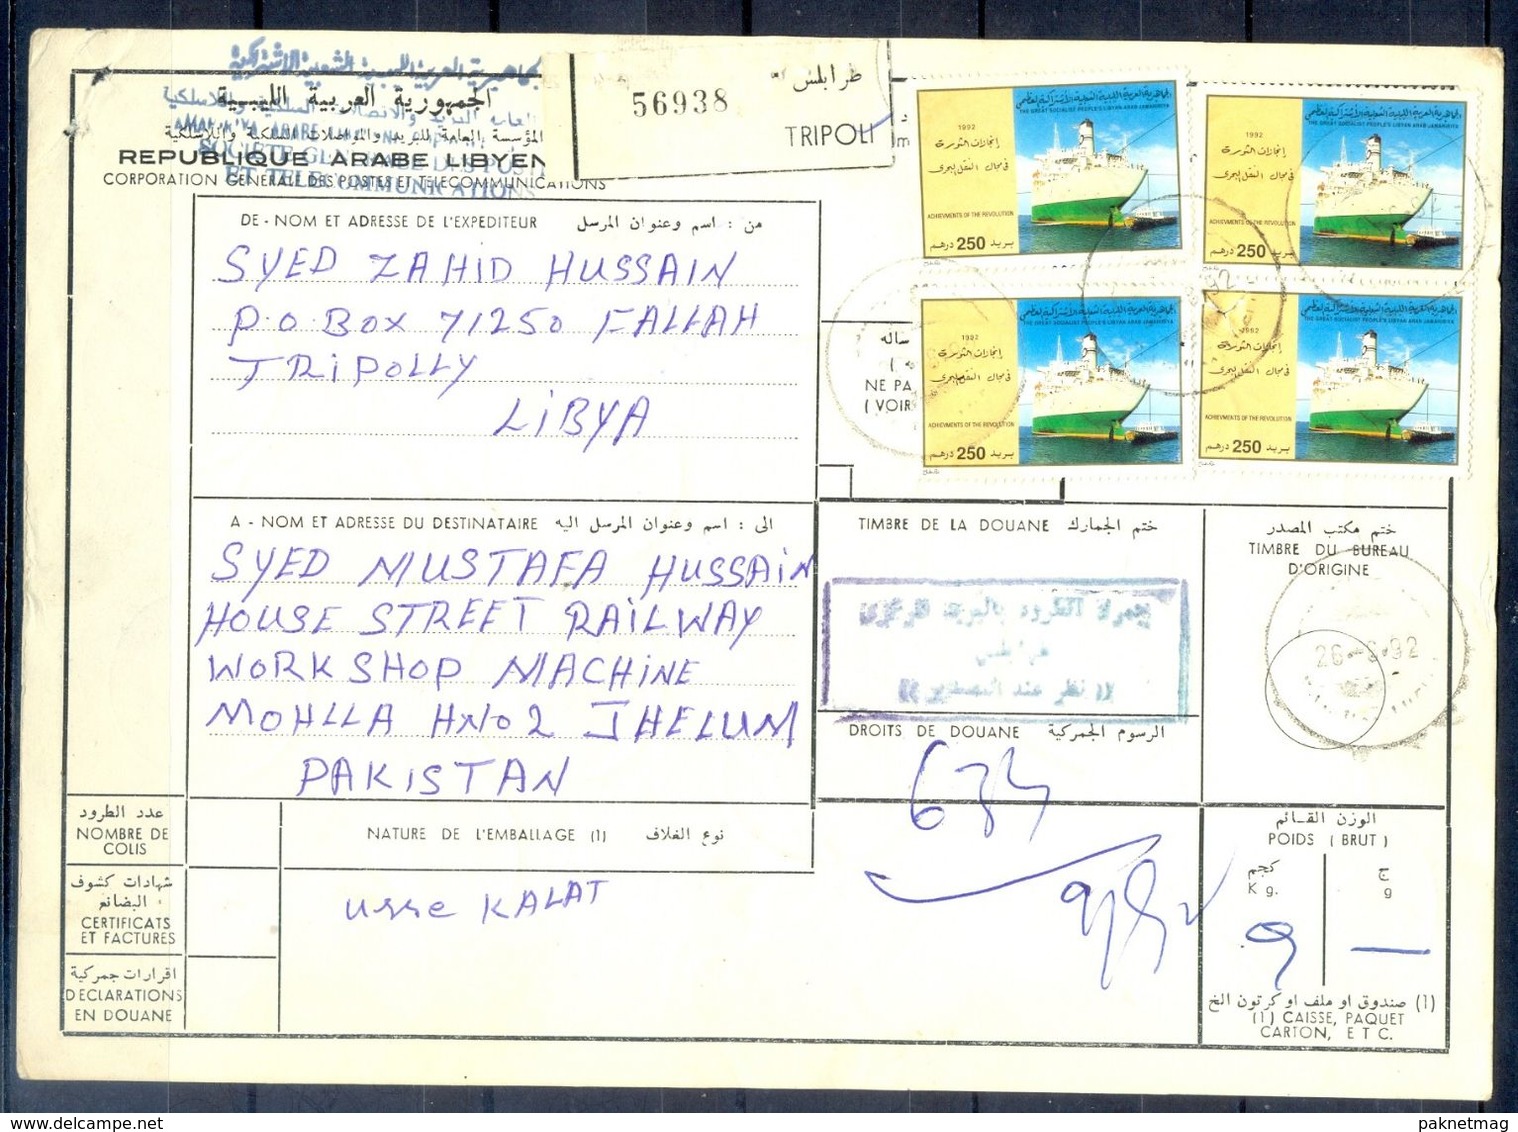 الجمهورية العربية الليبية
المؤسسة العامة للبريد والمواصلات السلكية واللاسلكية
REPUBLIQUE ARABE LIBYEN
CORPORATION GENERALE DES POSTES ET TELECOMMUNICATIONS
SOCIETE GENERALE DES POSTES
ET TELECOMMUNICATIONS
56938
طرابلس
TRIPOLI
DE - NOM ET ADRESSE DE L'EXPÉDITEUR من : اسم وعنوان المرسل
SYED ZAHID HUSSAIN
P.O.BOX 71250 FALLAH
TRIPOLLY
LIBYA
ساله
NE PA
( VOIR
1992
إنجازات الثورة
في مجال النقل البحري
ACHIEVMENTS OF THE REVOLUTION
بريد 250 درهم
الجماهيرية العربية الليبية الشعبية الاشتراكية العظمى
THE GREAT SOCIALIST PEOPLE'S LIBYAN ARAB JAMAHIRIYA
1992
إنجازات الثورة
في مجال النقل البحري
ACHIEVMENTS OF THE REVOLUTION
بريد 250 درهم
الجماهيرية العربية الليبية الشعبية الاشتراكية العظمى
THE GREAT SOCIALIST PEOPLE'S LIBYAN ARAB JAMAHIRIYA
1992
إنجازات الثورة
في مجال النقل البحري
ACHIEVMENTS OF THE REVOLUTION
بريد 250 درهم
الجماهيرية العربية الليبية الشعبية الاشتراكية العظمى
THE GREAT SOCIALIST PEOPLE'S LIBYAN ARAB JAMAHIRIYA
1992
إنجازات الثورة
في مجال النقل البحري
ACHIEVMENTS OF THE REVOLUTION
بريد 250 درهم
الجماهيرية العربية الليبية الشعبية الاشتراكية العظمى
THE GREAT SOCIALIST PEOPLE'S LIBYAN ARAB JAMAHIRIYA
A - NOM ET ADRESSE DU DESTINATAIRE الى : اسم وعنوان المرسل اليه
SYED MUSTAFA HUSSAIN
HOUSE STREET RAILWAY
WORKSHOP MACHINE
MOHLLA HNO 2 JHELUM
PAKISTAN
TIMBRE DE LA DOUANE ختم الجمارك
طرابلس
DROITS DE DOUANE الرسوم الجمركية
ختم مكتب المصدر
TIMBRE DU BUREAU
D'ORIGINE
26-8-92
عدد الطرود
NOMBRE DE
COLIS
شهادات كشوف
البضائع
CERTIFICATS
ET FACTURES
اقرارات جمركية
DECLARATIONS
EN DOUANE
NATURE DE L'EMBALLAGE (1) نوع الغلاف
USSE KALAT
الوزن القائم
POIDS ( BRUT )
كجم
Kg.
ج
g
9 —
(1) صندوق او ملف او كرتون الخ
(1) CAISSE, PAQUET
CARTON, ETC.
paknetmag